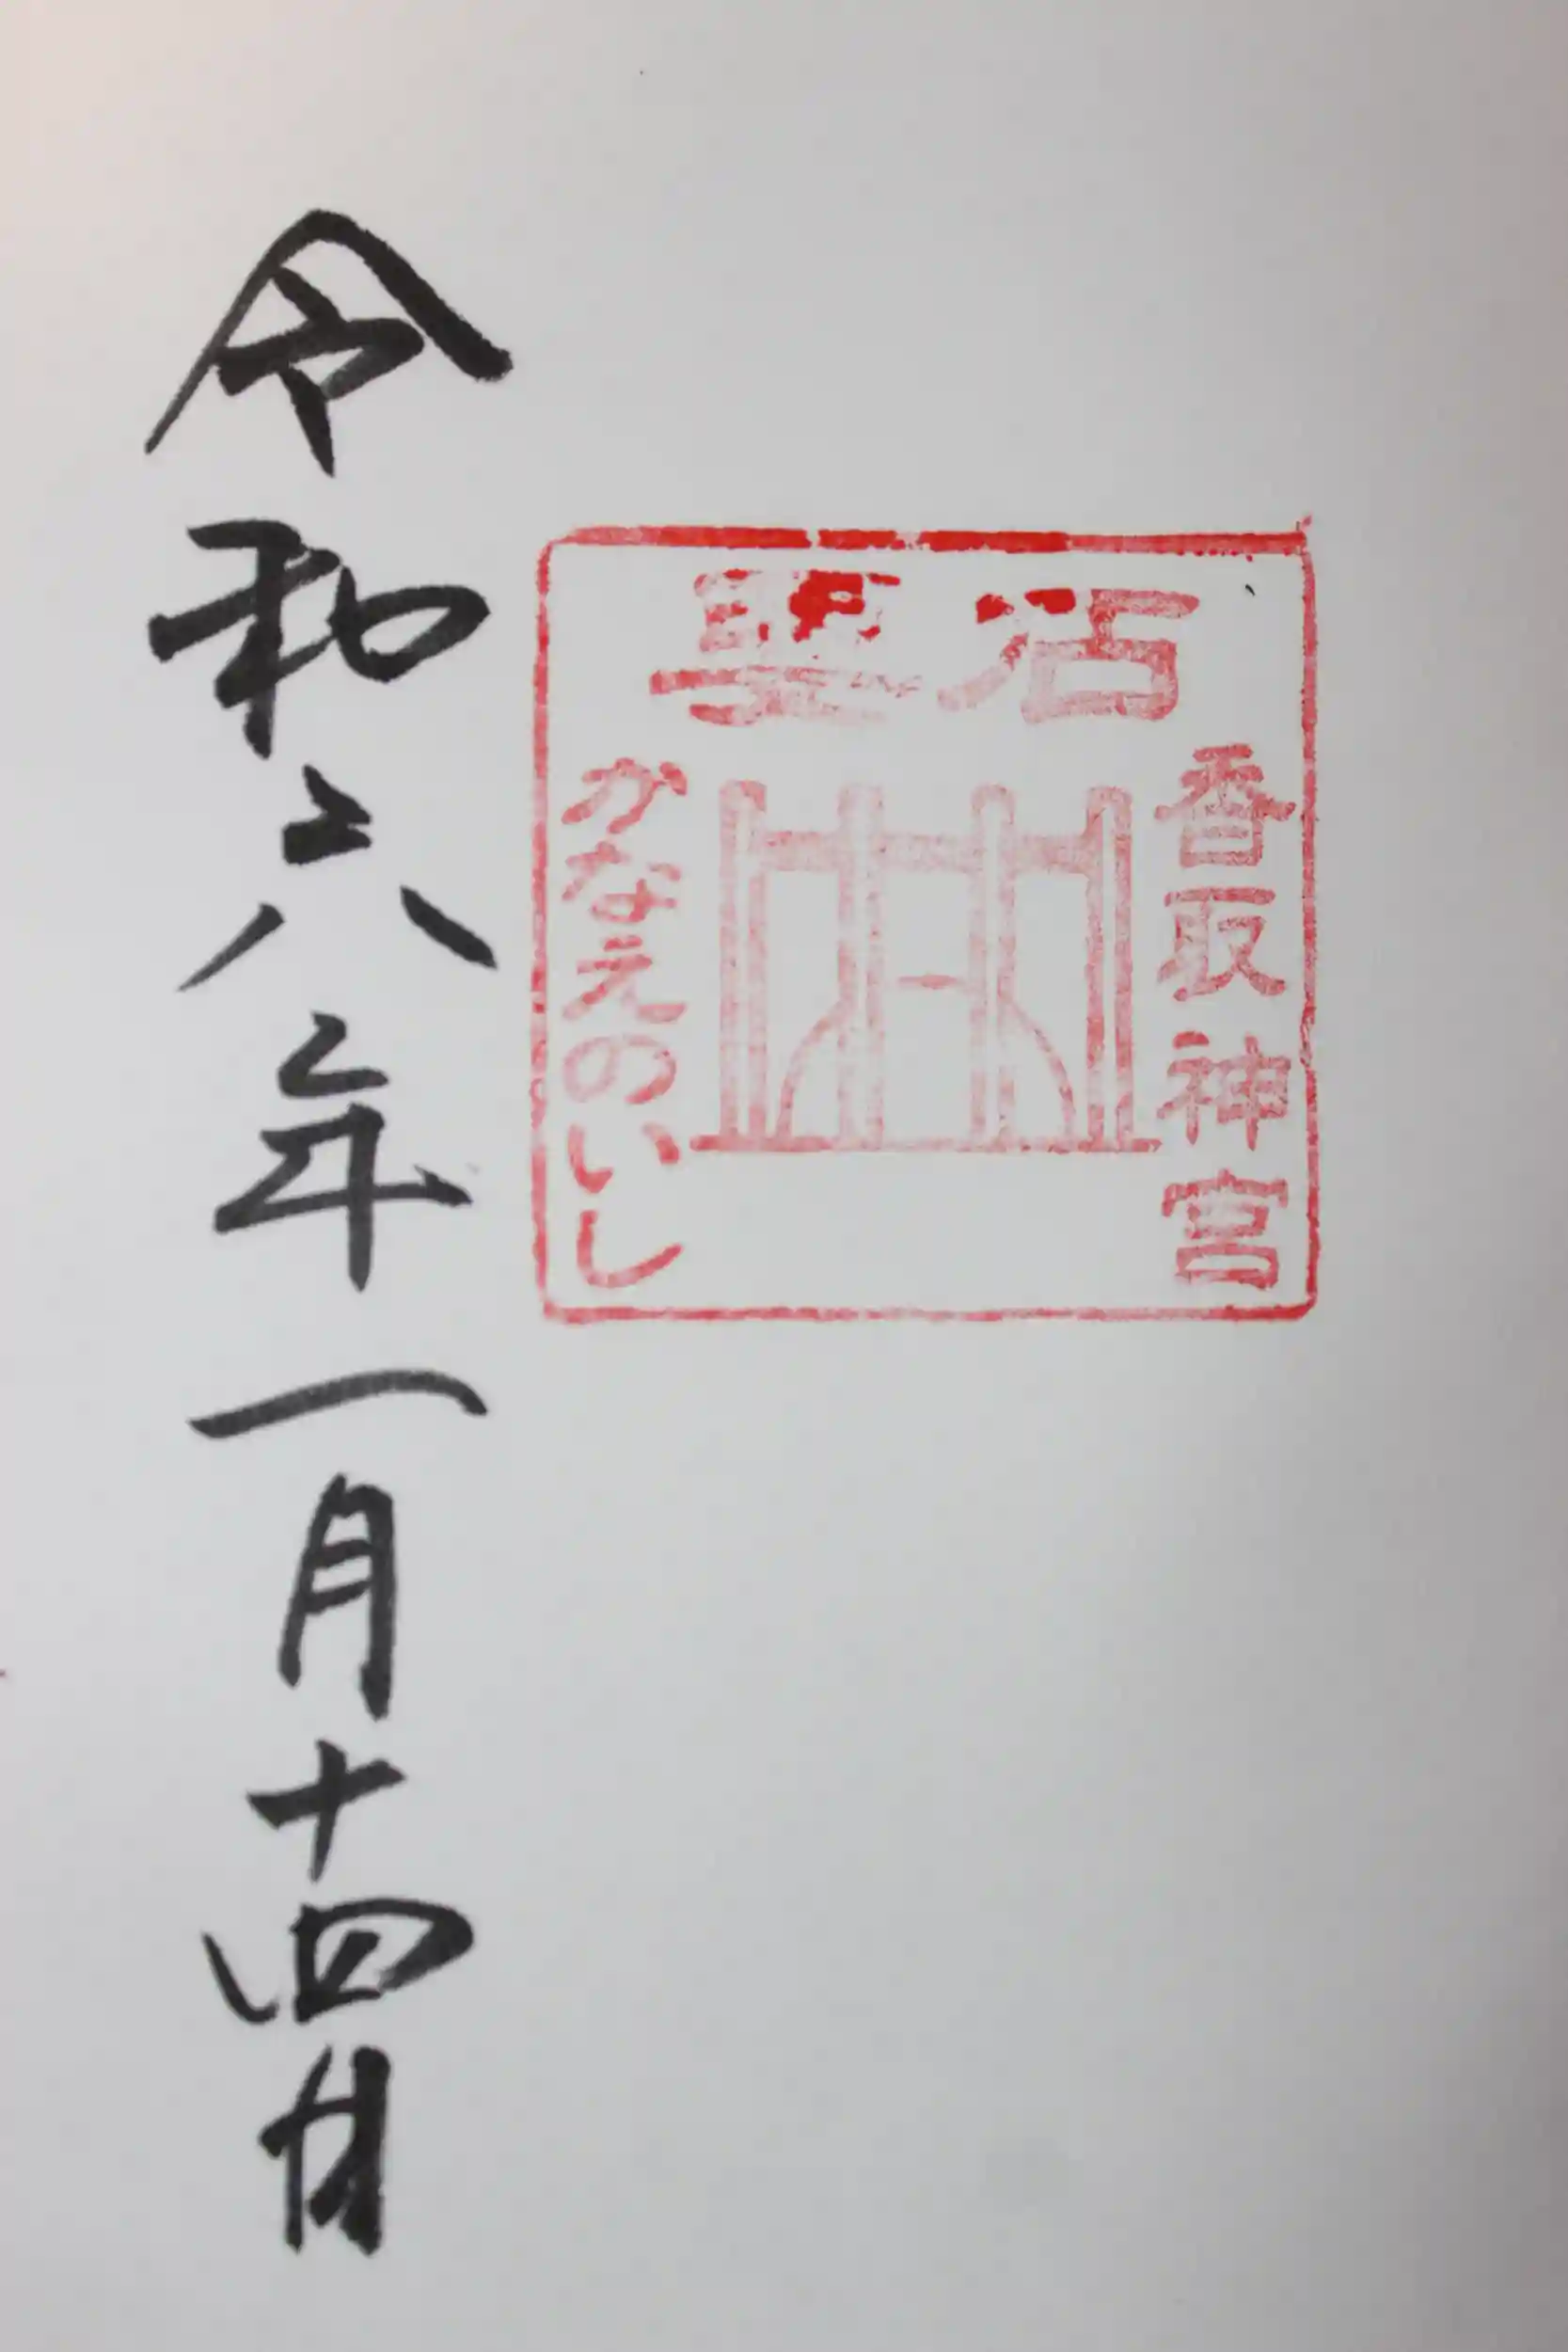 要石
香取神宮
かなえのいし
令和六年一月十四日